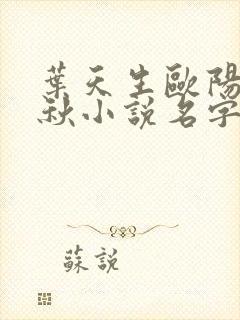 葉天生歐陽
秋小說名字
蘇說